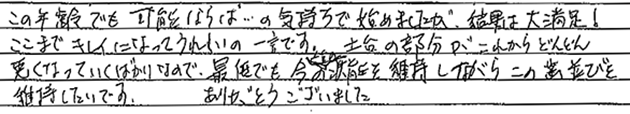 この年齢でも可能ならば…の気持ちで始めましたが、結果は大満足！
ここまでキレイになってうれしいの一言です。土台の部分がこれからどんどん
悪くなっていくばかりなので、最低でも今の状態を維持しながらこの歯並びを
維持したいです。 ありがとうございました